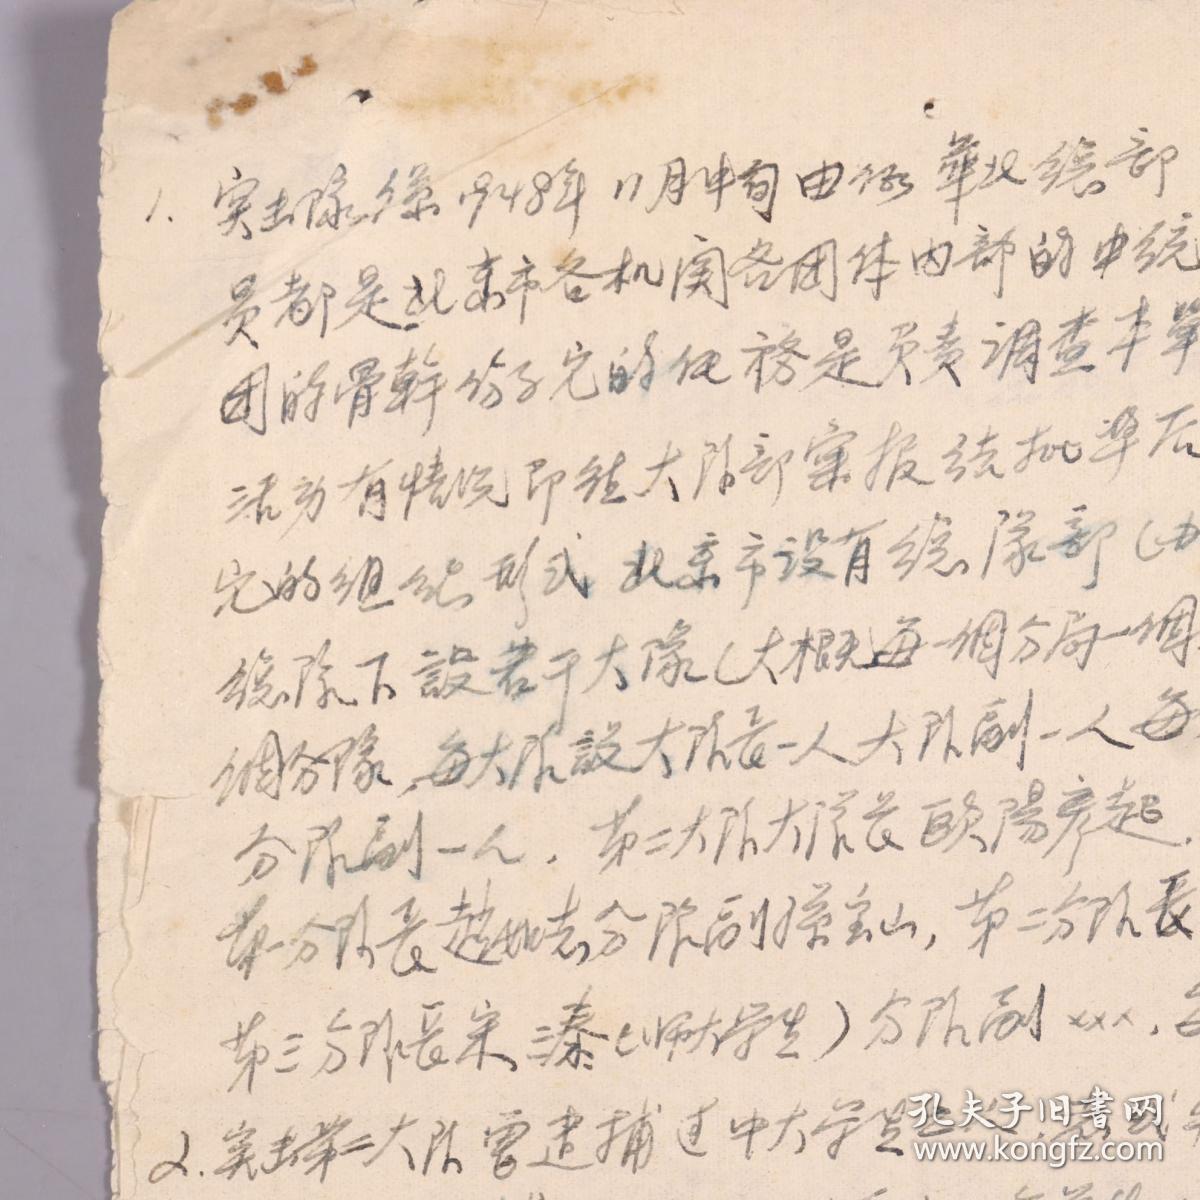 1. 突击隊係1948年11月中旬由 华北總部
员都是北京市各机関各团体内部的中统
团的骨幹份子它的任務是负责调查本單
活动有情况即往大队部彙报经批准后
它的组织形式北京市设有總隊部(由
總隊下設若干大隊(大概每一個分局一個
個分隊,每大队設大队長一人大队副一人每
分队副一人.第二大队大隊長欧陽彦起.
第一分队長趙 志分队副孫宝山,第二分队長
第三分队長宋 溱(师大学生)分队副xxx,
2.突击第二大队曾逮捕过中大学生
孔夫子旧書网
www.kongfz.com